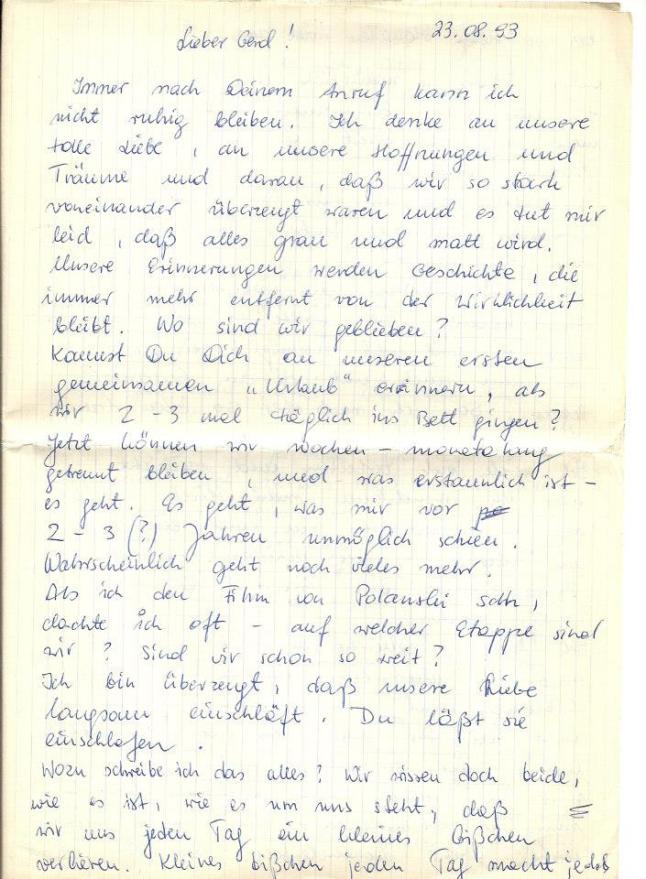 23.08.93
Lieber Gerd!
Immer nach Deinem Anruf kann ich
nicht ruhig bleiben. Ich denke an unsere
tolle Liebe, an unsere Hoffnungen und
Träume und daran, daß wir so stark
voneinander überzeugt waren und es tut mir
leid, daß alles grau und matt wird.
Unsere Erinnerungen werden Geschichte, die
immer mehr entfernt von der Wirklichkeit
bleibt. Wo sind wir geblieben?
Kannst Du Dich an unseren ersten
gemeinsamen „Urlaub“ erinnern, als
wir 2-3 mal täglich ins Bett gingen?
Jetzt können wir wochen- monatelang
getrennt bleiben, und was erstaunlich ist -
es geht. Es geht, was mir vor
2-3 (?) Jahren unmöglich schien.
Wahrscheinlich geht noch vieles mehr.
Als ich den Film von Polanski sah,
dachte ich oft - auf welcher Etappe sind
wir? Sind wir schon so weit?
Ich bin überzeugt, daß unsere Liebe
langsam einschläft. Du läßt sie
einschlafen.
Wozu schreibe ich das alles? Wir wissen doch beide,
wie es ist, wie es um uns steht, daß
wir uns jeden Tag ein kleines bißchen
verlieren. Kleines bißchen jeden Tag macht